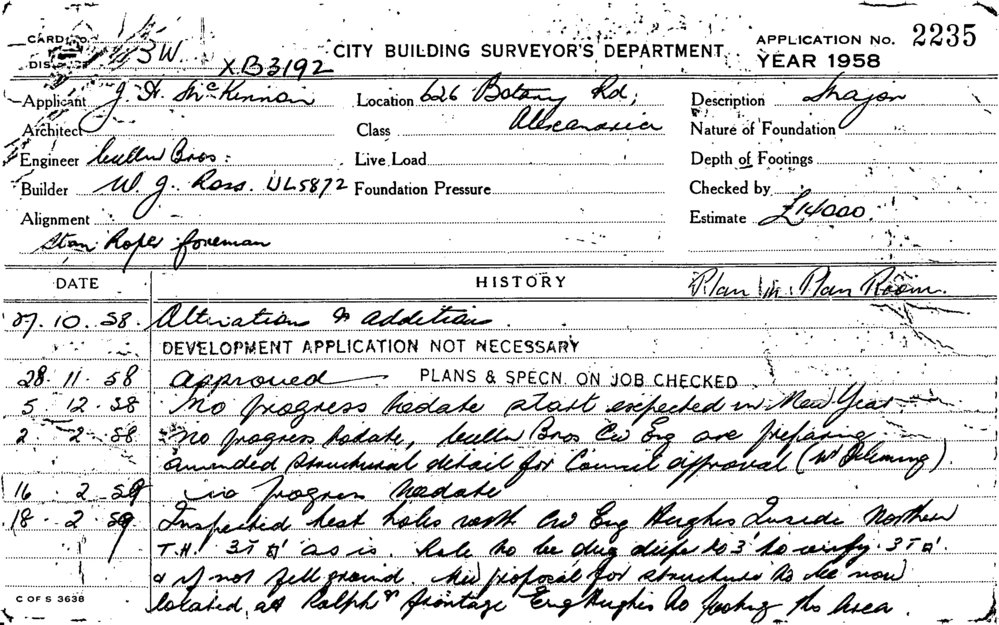 CITY BUILDING SURVEYOR'S DEPARTMENT
APPLICATION No. 2235
YEAR 1958
CARD No.
3W
XB3192
Applicant J. A. McKinnon
Location 626 Botany Rd,
Alexandria
Description Major
Architect
Class
Nature of Foundation
Engineer Bros.
Live Load
Depth of Footings
Builder W. J. Ross. UL5872
Foundation Pressure
Checked by
Alignment
Estimate £14000
Stan Roper foreman
DATE
HISTORY
Plan in Plan Room.
27. 10. 58. Alterations & additions.
DEVELOPMENT APPLICATION NOT NECESSARY
28. 11. 58 Approved PLANS & SPECN. ON JOB CHECKED
5 12. 58 No progress todate start expected in New Year
2 2. 58 No progress todate, Bros Civ Eng are preparing
amended structural detail for Council approval (Mr Fleming).
16. 2. 59 no progress todate
18. 2. 59 Inspected test holes with Civ Eng Hughes Inside Northern
T.H. 3T as is. Hole to be dug deeper to 3' to verify 3T
& if not fill ground. New proposal for structure to be now
located at Ralph St frontage Eng Hughes to the area.
C OF S 3638